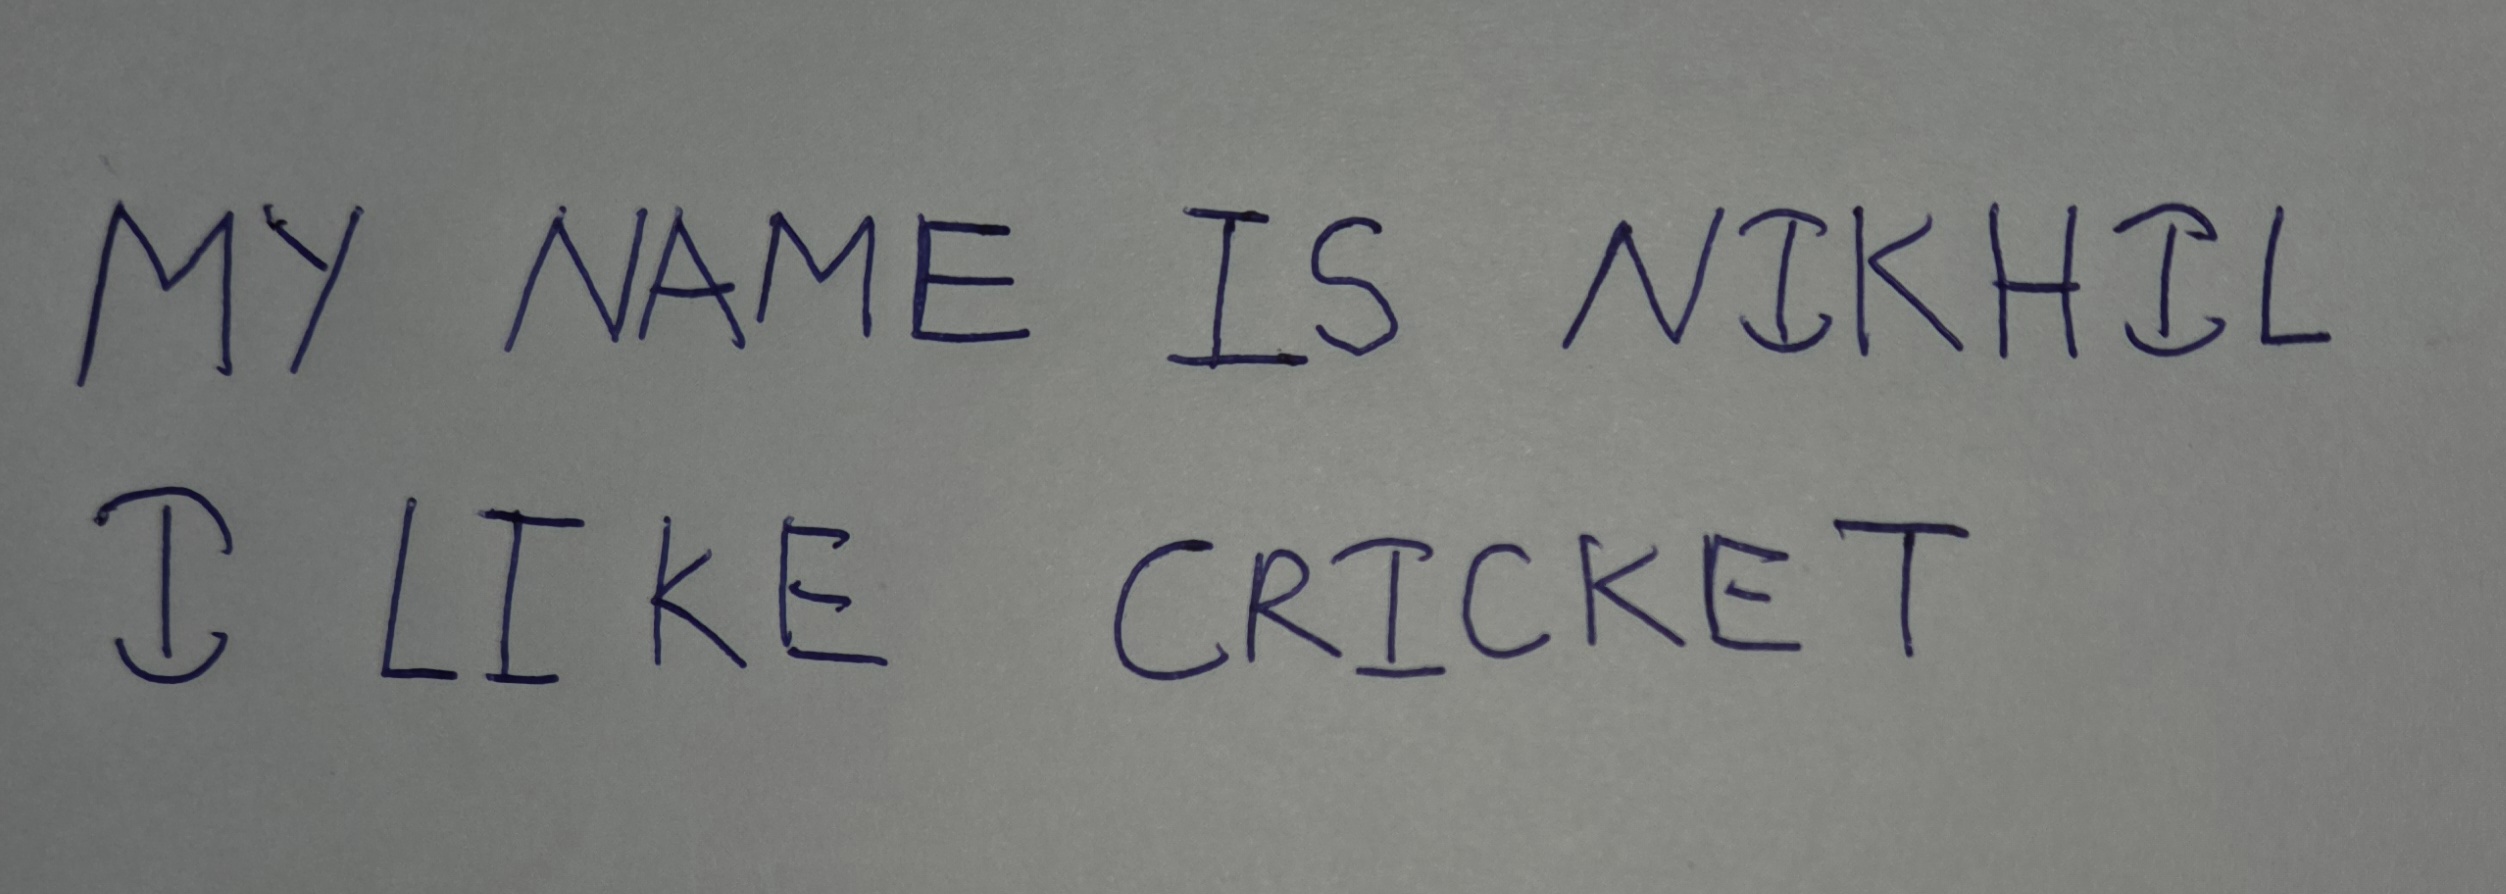 MY NAME IS NIKHIL
I LIKE CRICKET